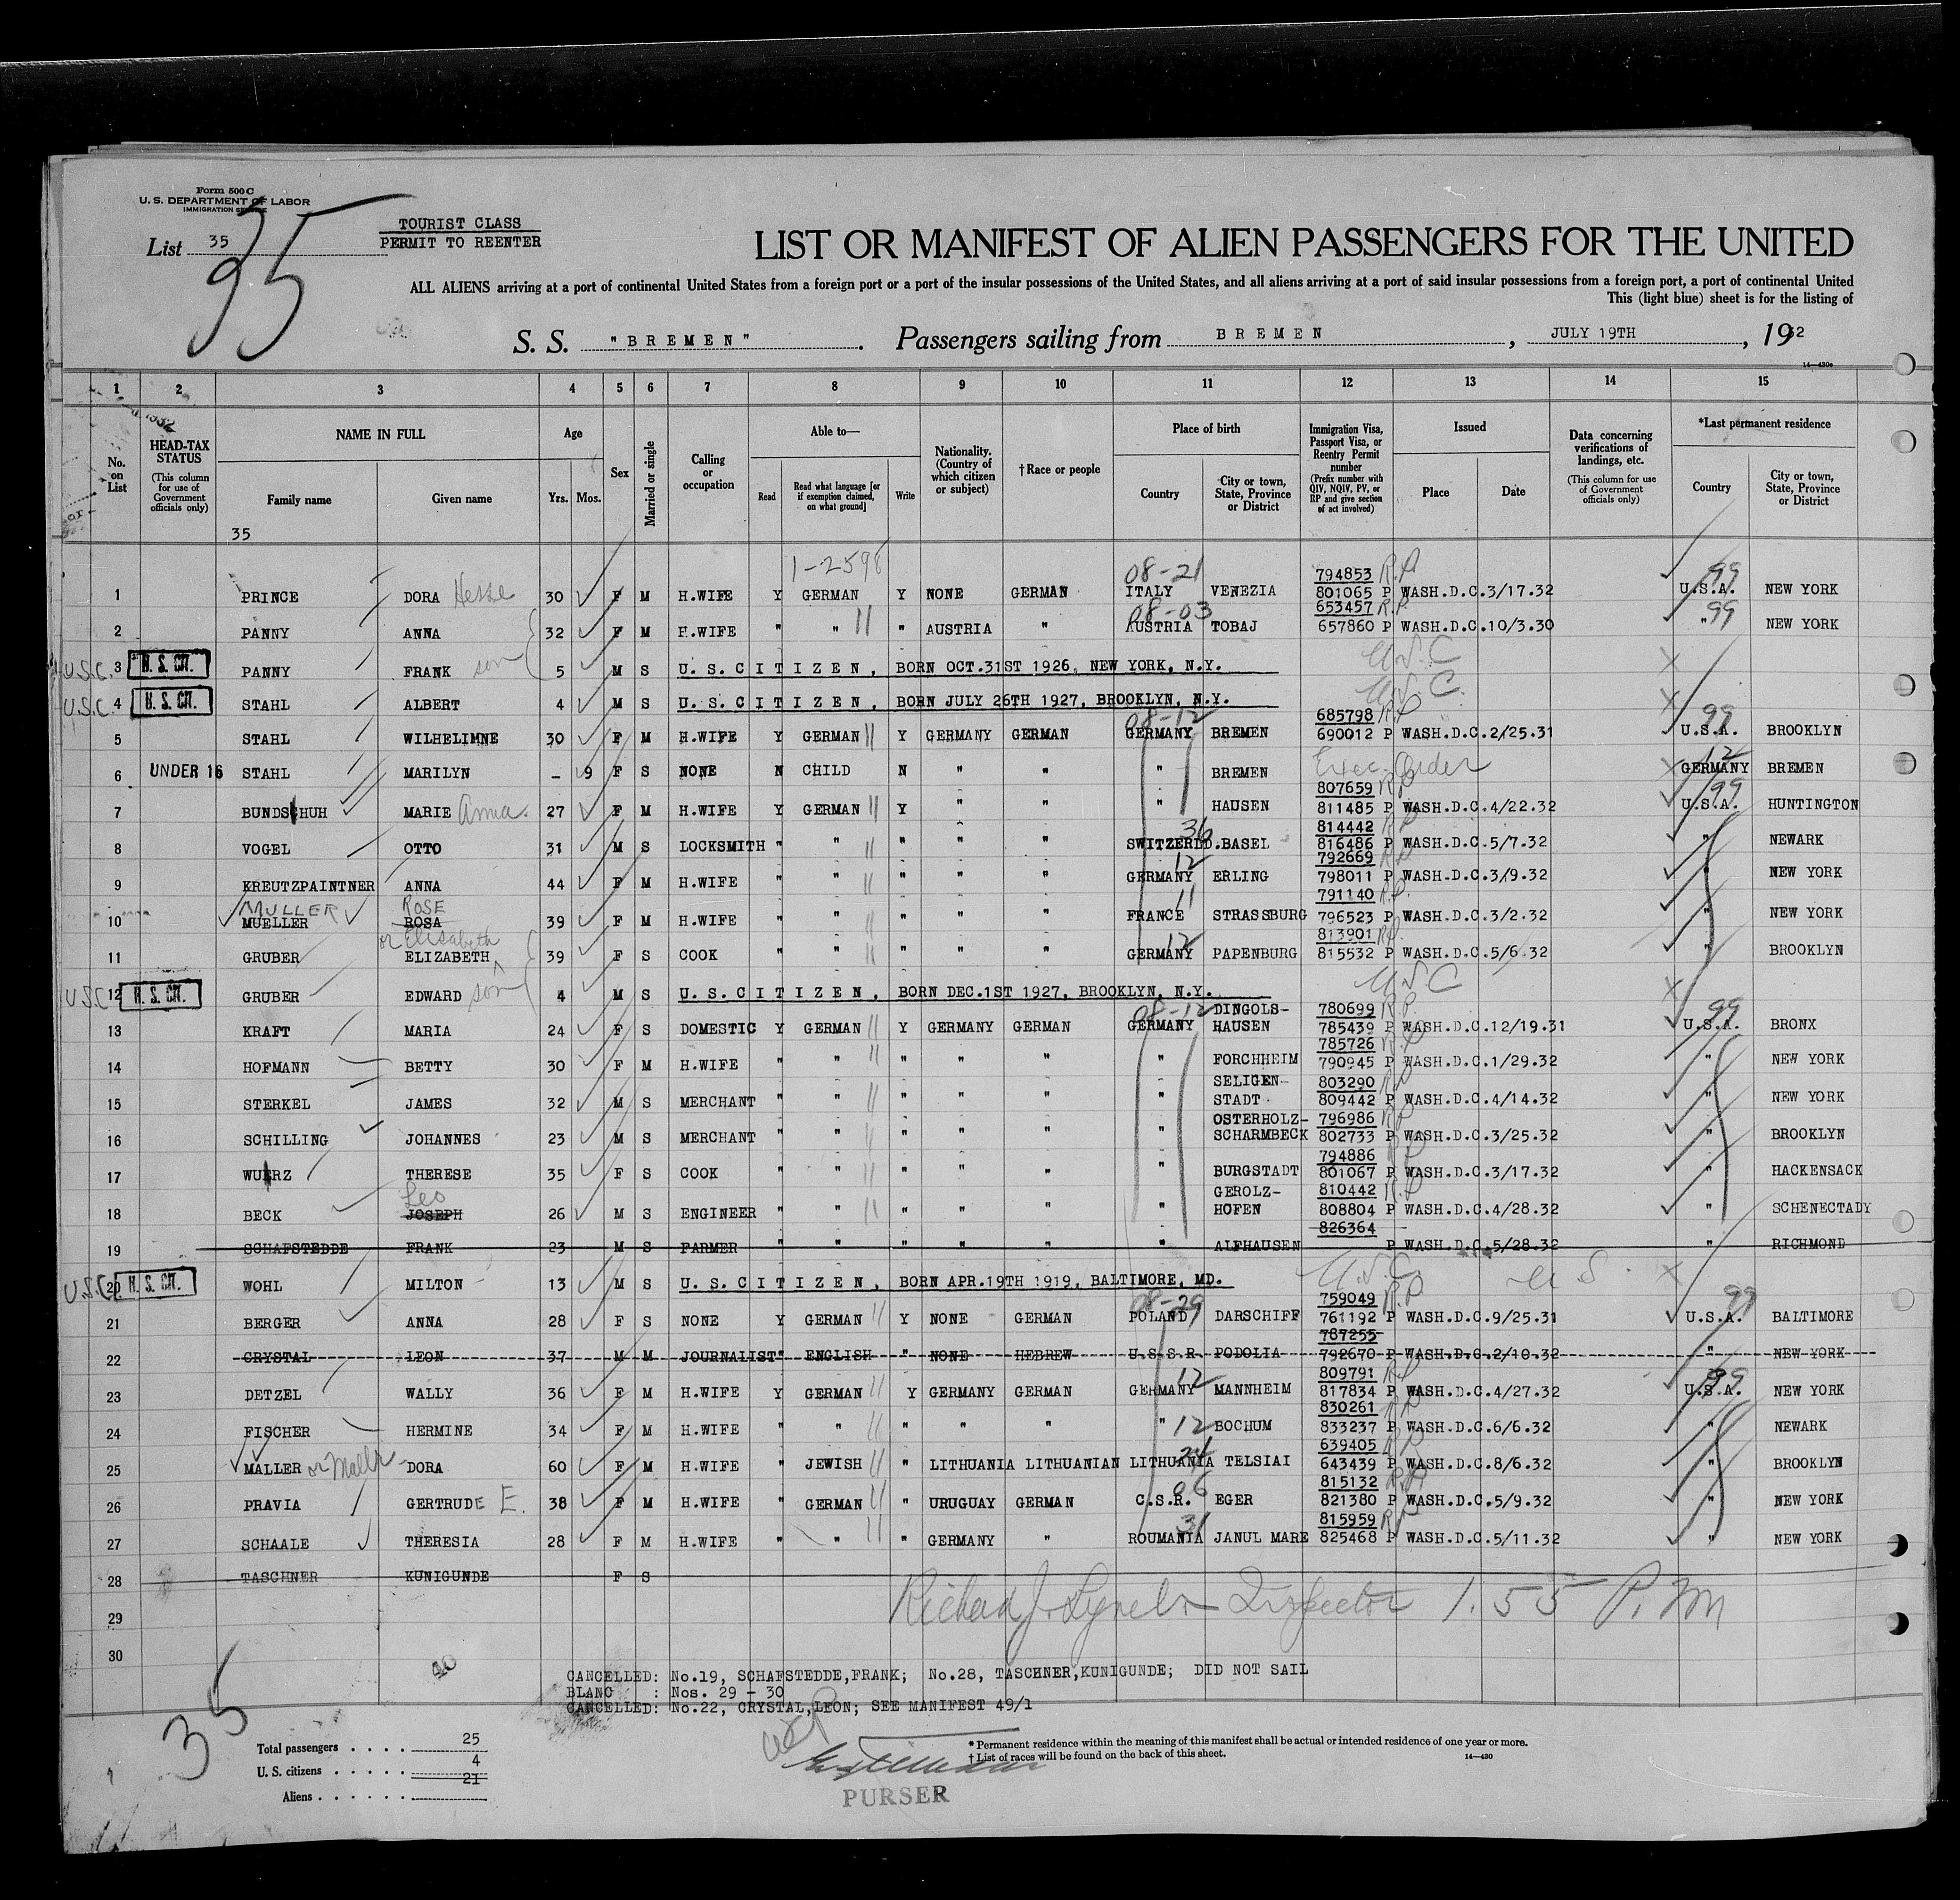 Form 500 C
U. S. DEPARTMENT OF LABOR
IMMIGRATION SERVICE
List 35
35
TOURIST CLASS
PERMIT TO REENTER
LIST OR MANIFEST OF ALIEN PASSENGERS FOR THE UNITED
ALL ALIENS arriving at a port of continental United States from a foreign port or a port of the insular possessions of the United States, and all aliens arriving at a port of said insular possessions from a foreign port, a port of continental United
This (light blue) sheet is for the listing of
S. S. "BREMEN" . Passengers sailing from BREMEN , JULY 19TH , 1932
14—430e
1 2 3 4 5 6 7 8 9 10 11 12 13 14 15
No. on List
HEAD-TAX STATUS (This column for use of Government officials only)
NAME IN FULL Family name Given name
35
Age Yrs. Mos.
Sex
Married or single
Calling or occupation
Able to— Read Read what language [or if exemption claimed, on what ground] Write
Nationality. (Country of which citizen or subject)
†Race or people
Place of birth Country City or town, State, Province or District
Immigration Visa, Passport Visa, or Reentry Permit number (Prefix number with QIV, NQIV, PV, or RP and give section of act involved)
Issued Place Date
Data concerning verifications of landings, etc. (This column for use of Government officials only)
*Last permanent residence Country City or town, State, Province or District
1-2598 08-21 794853 R.P 99
1 PRINCE DORA Hesse 30 F M H.WIFE Y GERMAN Y NONE GERMAN ITALY VENEZIA 801065 P WASH.D.C. 3/17.32 U.S.A. NEW YORK
08-03 653457 R.P. 99
2 PANNY ANNA 32 F M H.WIFE " " " AUSTRIA " AUSTRIA TOBAJ 657860 P WASH.D.C. 10/3.30 " NEW YORK
U.S.C. 3 U. S. CIT. PANNY FRANK son 5 M S U. S. CITIZEN, BORN OCT.31ST 1926, NEW YORK, N.Y. U.S.C
U.S.C. 4 U. S. CIT. STAHL ALBERT 4 M S U. S. CITIZEN, BORN JULY 26TH 1927, BROOKLYN, N.Y. U.S.C.
08-12 685798 R.P 99
5 STAHL WILHELIMNE 30 F M H.WIFE Y GERMAN Y GERMANY GERMAN GERMANY BREMEN 690012 P WASH.D.C. 2/25.31 U.S.A. BROOKLYN
12
6 UNDER 16 STAHL MARILYN – 9 F S NONE N CHILD N " " " BREMEN Exec. Order GERMANY BREMEN
807659 R.P 99
7 BUNDSCHUH MARIE Anna 27 F M H.WIFE Y GERMAN Y " " " HAUSEN 811485 P WASH.D.C. 4/22.32 U.S.A. HUNTINGTON
36 814442 R.P
8 VOGEL OTTO 31 M S LOCKSMITH " " " " " SWITZERLD. BASEL 816486 P WASH.D.C. 5/7.32 " NEWARK
12 792669 R.P
9 KREUTZPAINTNER ANNA 44 F M H.WIFE " " " " " GERMANY ERLING 798011 P WASH.D.C. 3/9.32 " NEW YORK
MULLER ROSE 11 791140 R.P.
10 MUELLER ROSA 39 F M H.WIFE " " " " " FRANCE STRASSBURG 796523 P WASH.D.C. 3/2.32 " NEW YORK
or Elisabeth 12 813901 R.P
11 GRUBER ELIZABETH 39 F S COOK " " " " " GERMANY PAPENBURG 815532 P WASH.D.C. 5/6.32 " BROOKLYN
USC 12 U. S. CIT. GRUBER EDWARD son 4 M S U. S. CITIZEN, BORN DEC.1ST 1927, BROOKLYN, N.Y. U.S.C
08-12 DINGOLS- 780699 R.P. 99
13 KRAFT MARIA 24 F S DOMESTIC Y GERMAN Y GERMANY GERMAN GERMANY HAUSEN 785439 P WASH.D.C. 12/19.31 U.S.A. BRONX
785726 R.P
14 HOFMANN BETTY 30 F M H.WIFE " " " " " " FORCHHEIM 790945 P WASH.D.C. 1/29.32 " NEW YORK
SELIGEN- 803290 R.P
15 STERKEL JAMES 32 M S MERCHANT " " " " " " STADT 809442 P WASH.D.C. 4/14.32 " NEW YORK
OSTERHOLZ- 796986 R.P
16 SCHILLING JOHANNES 23 M S MERCHANT " " " " " " SCHARMBECK 802733 P WASH.D.C. 3/25.32 " BROOKLYN
794886 R.P
17 WUERZ THERESE 35 F S COOK " " " " " " BURGSTADT 801067 P WASH.D.C. 3/17.32 " HACKENSACK
Leo GEROLZ- 810442 R.P
18 BECK JOSEPH 26 M S ENGINEER " " " " " " HOFEN 808804 P WASH.D.C. 4/28.32 " SCHENECTADY
826364
19 SCHAFSTEDDE FRANK 23 M S FARMER " " " " " " ALFHAUSEN P WASH.D.C. 5/28.32 " RICHMOND
U.S.C. 20 U. S. CIT. WOHL MILTON 13 M S U. S. CITIZEN, BORN APR.19TH 1919, BALTIMORE, MD. U.S.C. U.S.
08-29 759049 R.P 99
21 BERGER ANNA 28 F S NONE Y GERMAN Y NONE GERMAN POLAND DARSCHIFF 761192 P WASH.D.C. 9/25.31 U.S.A. BALTIMORE
787255
22 CRYSTAL LEON 37 M M JOURNALIST " ENGLISH " NONE HEBREW U.S.S.R. PODOLIA 792670 P WASH.D.C. 2/10.32 " NEW YORK
12 809791 R.P 99
23 DETZEL WALLY 36 F M H.WIFE Y GERMAN Y GERMANY GERMAN GERMANY MANNHEIM 817834 P WASH.D.C. 4/27.32 U.S.A. NEW YORK
830261 R.P
24 FISCHER HERMINE 34 F M H.WIFE " " " " " " 12 BOCHUM 833237 P WASH.D.C. 6/6.32 " NEWARK
24 639405 R.P
25 MALLER or Maller DORA 60 F M H.WIFE " JEWISH " LITHUANIA LITHUANIAN LITHUANIA TELSIAI 643439 P WASH.D.C. 8/6.32 " BROOKLYN
06 815132 R.P
26 PRAVIA GERTRUDE E. 38 F M H.WIFE " GERMAN " URUGUAY GERMAN C.S.R. EGER 821380 P WASH.D.C. 5/9.32 " NEW YORK
31 815959 R.P
27 SCHAALE THERESIA 28 F M H.WIFE " " " GERMANY " ROUMANIA JANUL MARE 825468 P WASH.D.C. 5/11.32 " NEW YORK
28 TASCHNER KUNIGUNDE F S
29 Richard J. Lynch Inspector 1.55 P.M
30
40
CANCELLED: No.19, SCHAFSTEDDE,FRANK; No.28, TASCHNER,KUNIGUNDE; DID NOT SAIL
BLANC : Nos. 29 – 30
CANCELLED: No.22, CRYSTAL,LEON; SEE MANIFEST 49/1
35
Total passengers . . . . 25
U. S. citizens . . . . . 4
Aliens . . . . . . 21
* Permanent residence within the meaning of this manifest shall be actual or intended residence of one year or more.
† List of races will be found on the back of this sheet.
14—430
PURSER